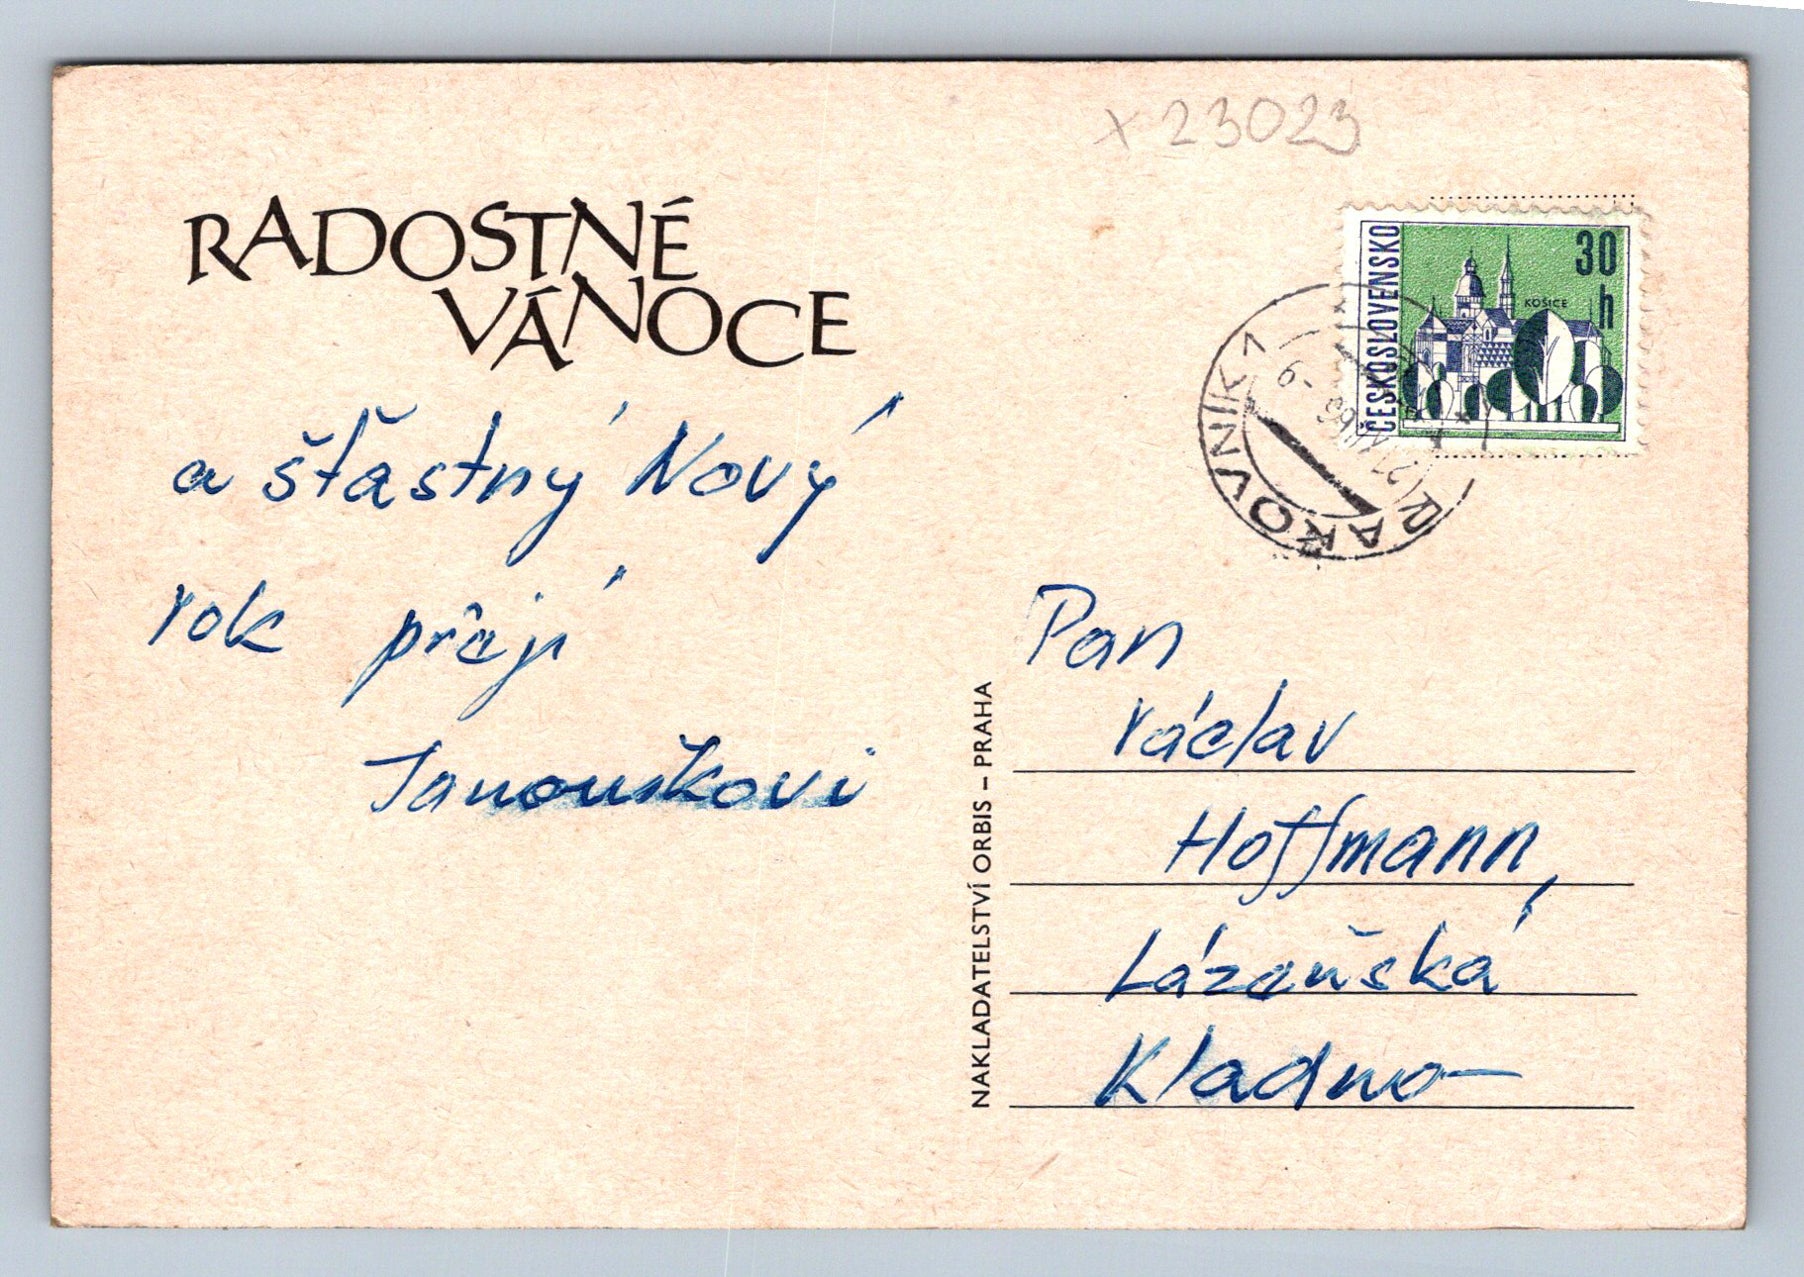 x 23023
RADOSTNÉ
VÁNOCE
a šťastný Nový
rok přejí
Janouškovi
NAKLADATELSTVÍ ORBIS – PRAHA
ČESKOSLOVENSKO
30
h
KOŠICE
RAKOVNÍK 1
Pan
Václav
Hoffmann,
Lázeňská
Kladno